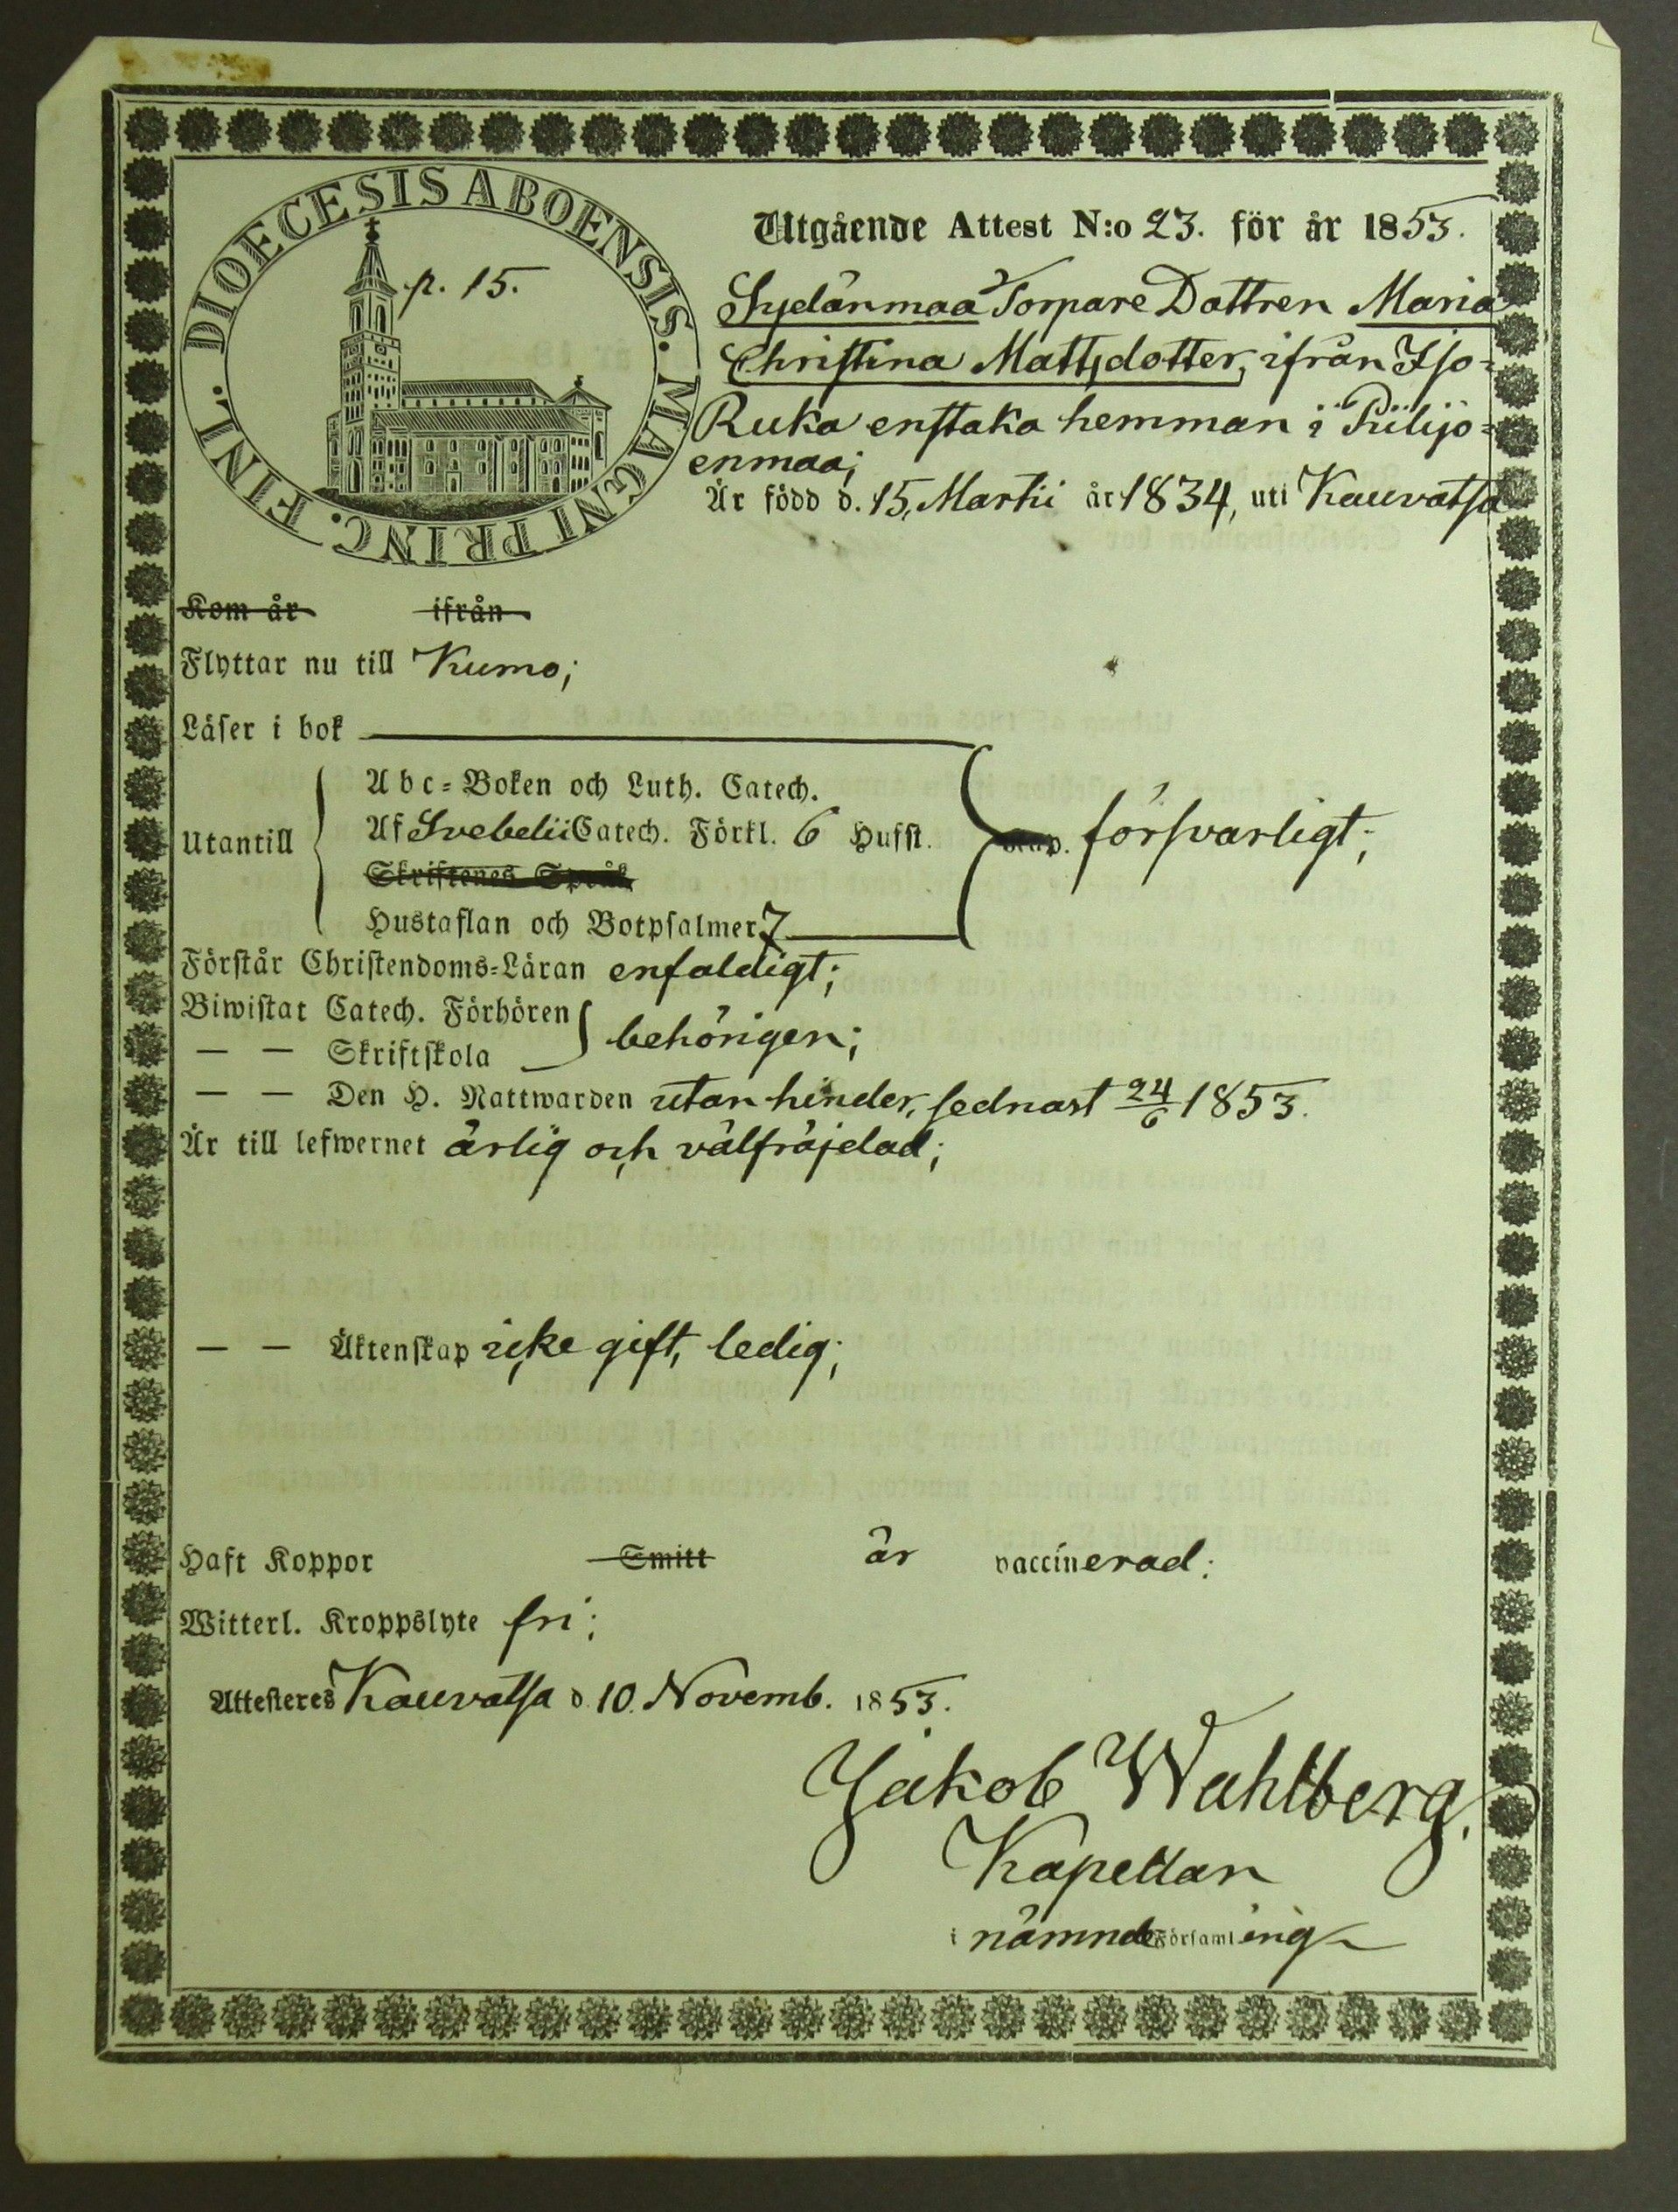 DIOECESIS ABOENSIS. MAGNI PRINC. FINL.
p. 15.
Utgående Attest N:o 23. för år 1853.
Sydänmaa Torpare Dottren Maria
Christina Mattsdotter, ifrån Iso-
Ruka enstaka hemman i Piilijo-
enmaa;
Är född d. 15, Martii år 1834, uti Kauvatsa
Kom år ifrån
Flyttar nu till Kumo;
Läser i bok
Utantill
Abc-Boken och Luth. Catech.
Af Svebelii Catech. Förkl. 6 Hufst. försvarligt;
Skriftenes Språk
Hustaflan och Botpsalmer 7
Förstår Christendoms-Läran enfaldigt;
Biwistat Catech. Förhören
— — Skriftskola behörigen;
— — Den H. Nattwarden utan hinder, sednast 24/6 1853.
Är till lefwernet ärlig och välfräjdad;
— — Äktenskap icke gift, ledig;
Haft Koppor Smitt är vaccinerad:
Witterl. Kroppslyte fri;
Attesteres Kauvatsa d. 10. Novemb. 1853.
Jakob Wahlberg.
Kapellan
i nämnde Församling